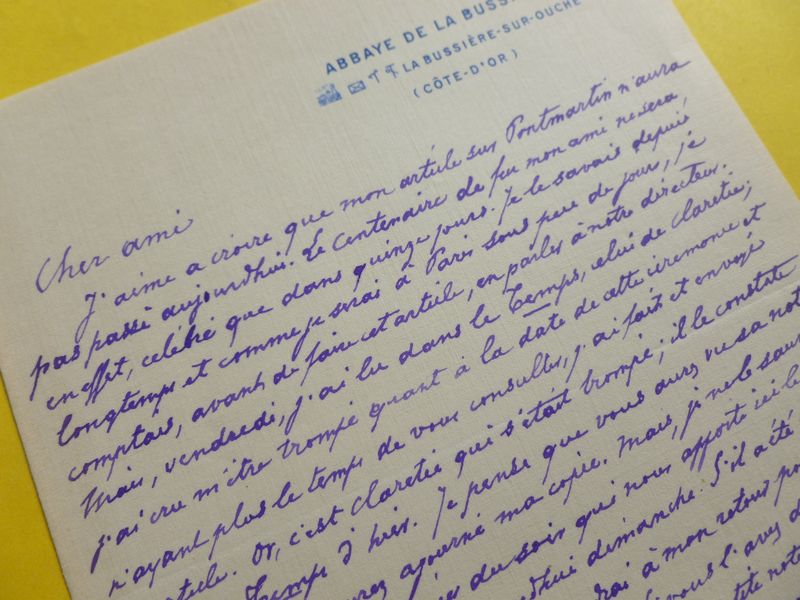 ABBAYE DE LA BUSS
LA BUSSIÈRE-SUR-OUCHE
(CÔTE-D'OR)
Cher ami
J'aime a croire que mon article sur Pontmartin n'aura
pas passé aujourdhui. Le Centenaire de feu mon ami ne sera,
en effet, célébré que dans quinze jours. Je le savais depuis
longtemps et comme je serai à Paris sous peu de jours, je
comptais, avant de faire cet article, en parler à notre directeur.
Mais, vendredi, j'ai lu dans le Temps, celui de Claretie;
j'ai cru m'être trompé quant à la date de cette cérémonie et
n'ayant plus le temps de vous consulter, j'ai fait et envoyé
article. Or, c'est Claretie qui s'était trompé; il le constate
Temps d'hier. Je pense que vous aurez vu sa not
urez ajourné ma copie. Mais, je ne le saur
du soir qui nous apporte ici le
dhui dimanche. S'il a été
rai à mon retour po
vous l'avez d
tite not